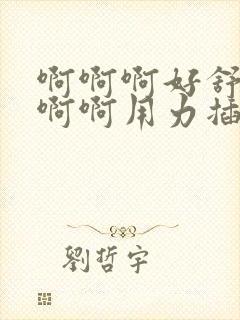 啊啊啊好舒
啊啊用力插
劉哲宇